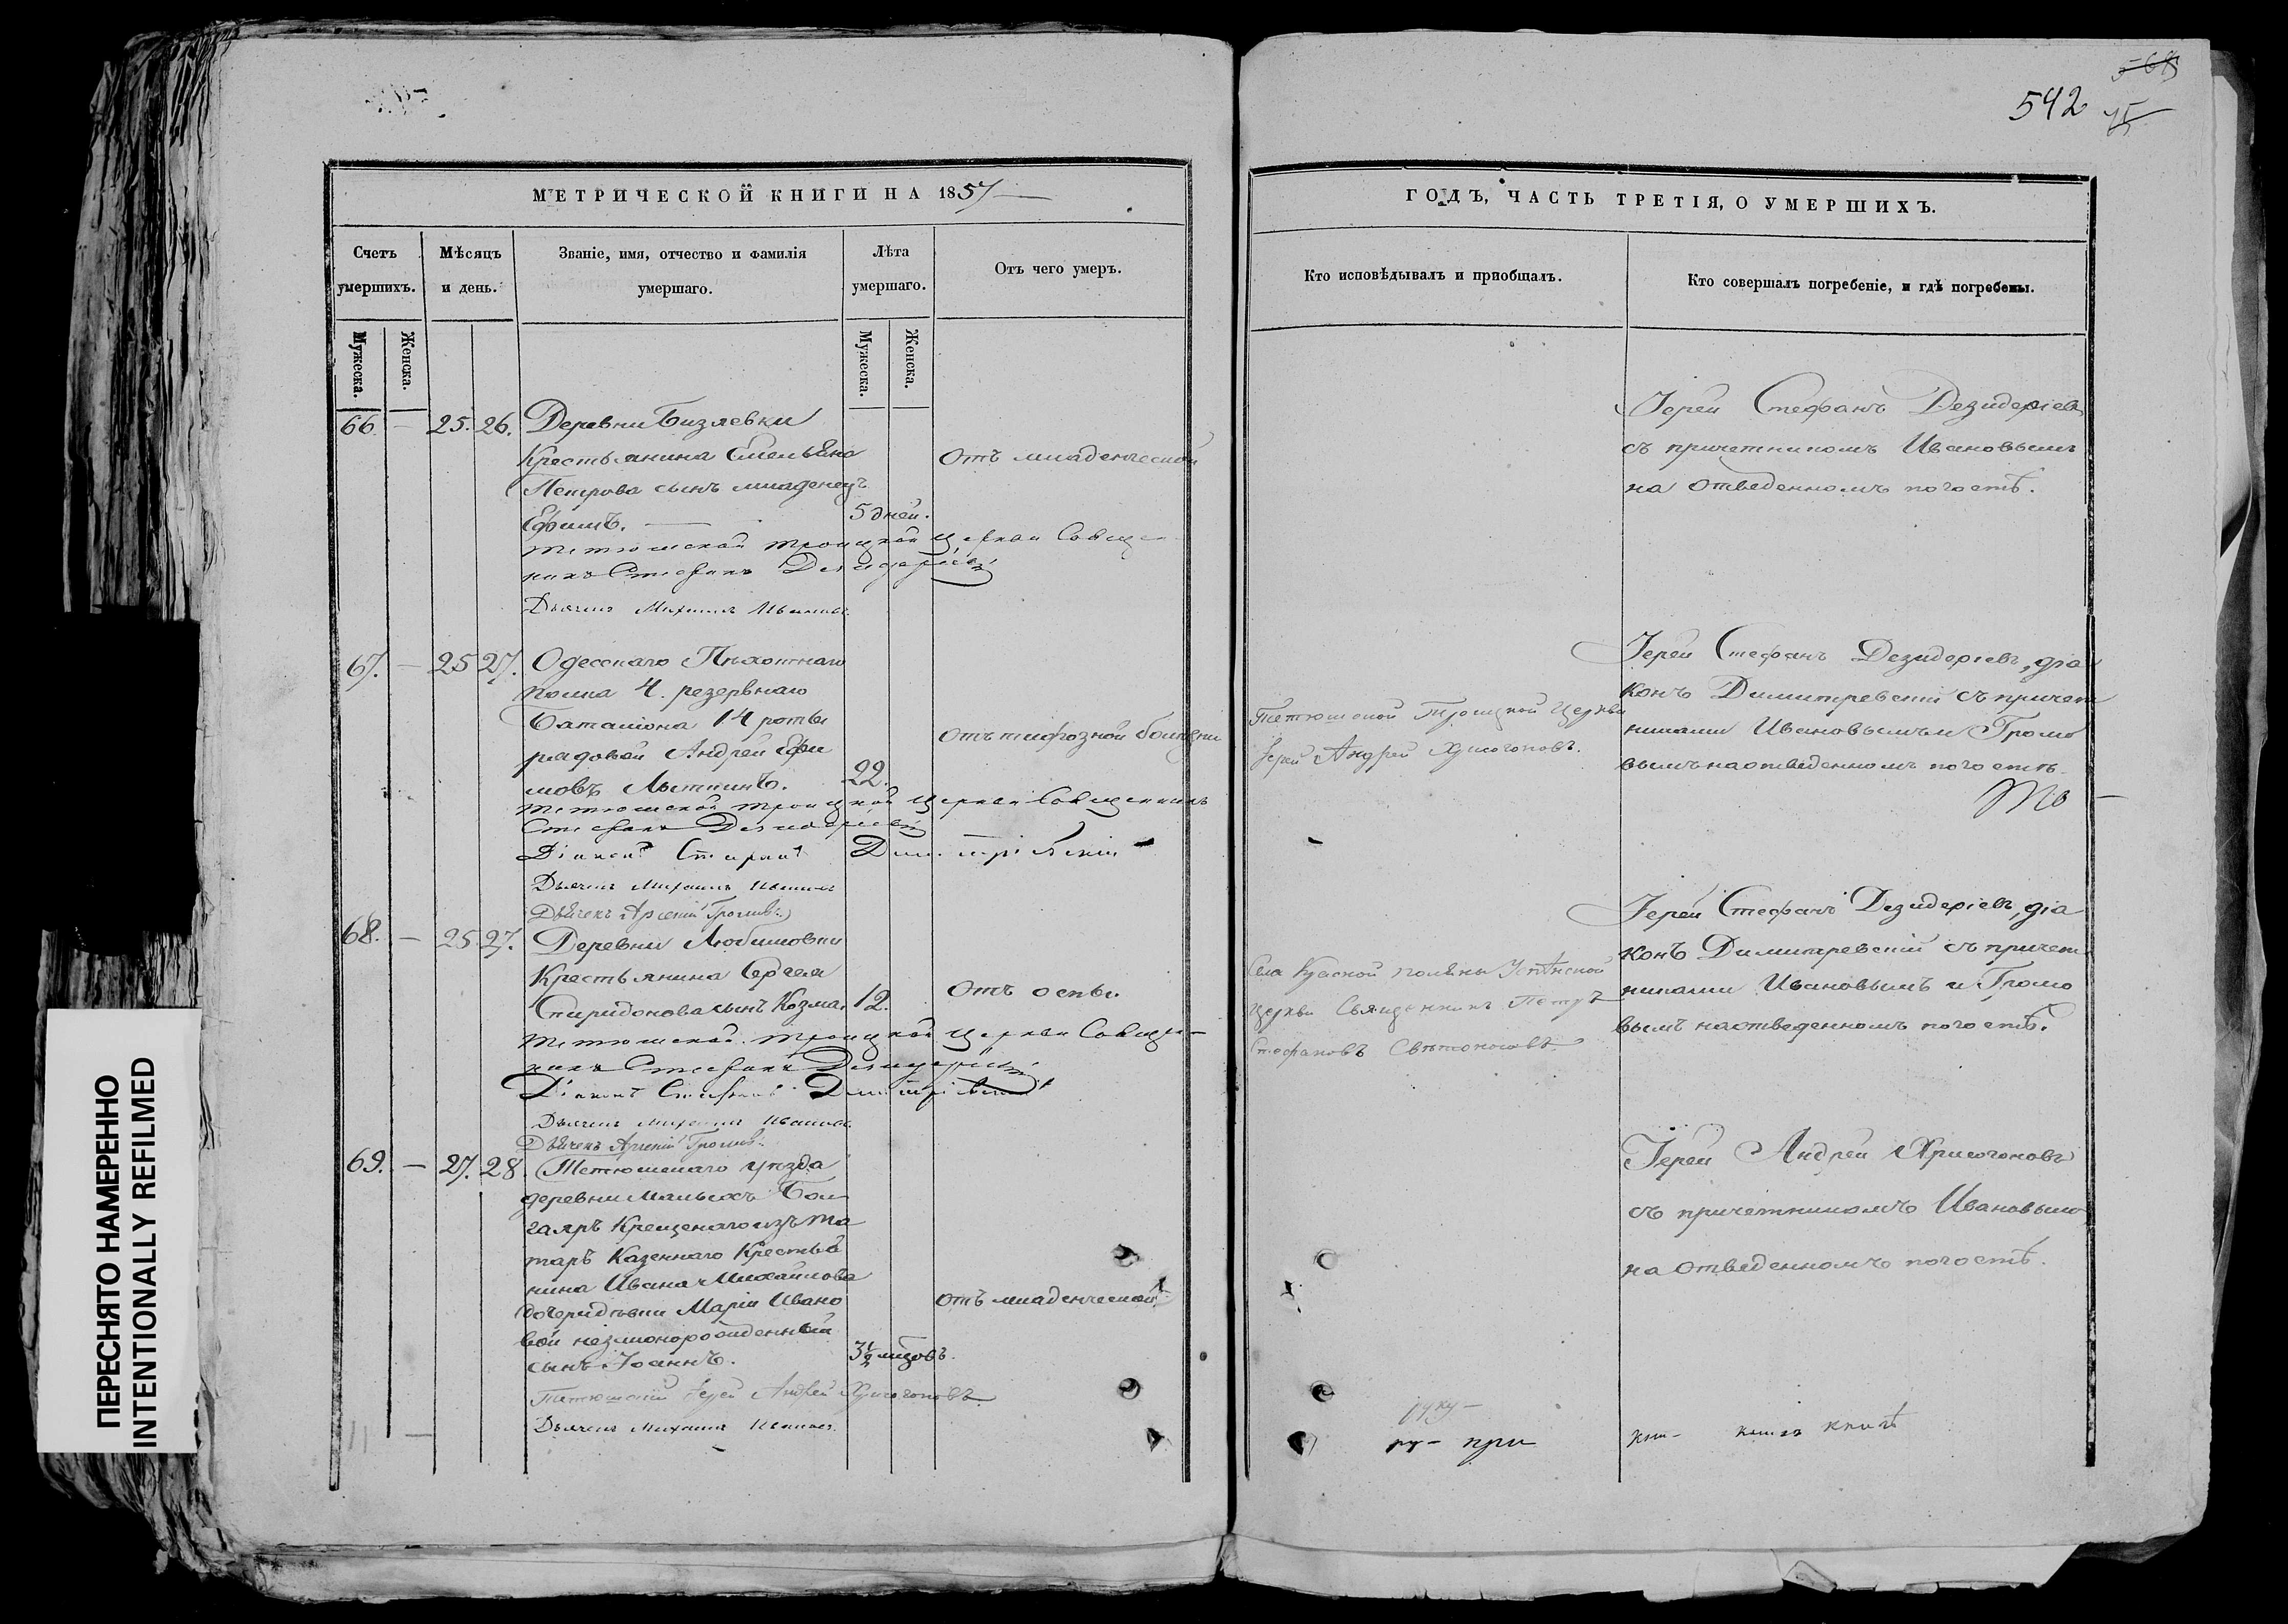 542
МЕТРИЧЕСКОЙ КНИГИ НА 1857
Счетъ умершихъ.
Мѣсяцъ и день.
Званіе, имя, отчество и фамилія умершаго.
Лѣта умершаго.
Отъ чего умеръ.
Мужеска.
Женска.
Мужеска.
Женска.
66 — 25. 26. Деревни Бизяевки
Крестьянина Емельяна
Петрова сынъ младенецъ
Ефимъ. — 5 дней.
Отъ младенческой
Тетюшской Троицкой Церкви Священ
никъ Стефанъ Дезидеріевъ
Дьячекъ Михаилъ Ивановъ
67. — 25 27. Одесскаго Пѣхотнаго
полка 4. резервнаго
Баталіона 14 роты
рядовой Андрей Ефи
мовъ Лыткинъ. 22.
отъ тифозной болѣзни
Тетюшской Троицкой Церкви Священникъ
Стефанъ Дезидеріевъ
Діаконъ Стефанъ Димитріевскій
Дьячекъ Михаилъ Ивановъ
Дьячекъ Арсеній Громовъ
68. — 25 27. Деревни Любимовки
Крестьянина Сергея
Спиридонова сынъ Козма. 12.
отъ оспы.
Тетюшской Троицкой Церкви Священ
никъ Стефанъ Дезидеріевъ
Діаконъ Стефанъ Димитріевскій
Дьячекъ Михаилъ Ивановъ
Дьячекъ Арсеній Громовъ
69. — 27. 28. Тетюшскаго уѣзда
деревни Малыхъ Бол
гаяръ Крещенаго изъ та
таръ Казеннаго Крестья
нина Ивана Михайлова
дочери дѣвки Маріи Ивано
вой незаконорожденный
сынъ Іоаннъ. 3½ мѣсовъ.
отъ младенческой
Тетюшскій Іерей Андрей Хрисогоновъ
Дьячекъ Михаилъ Ивановъ
ГОДЪ, ЧАСТЬ ТРЕТІЯ, О УМЕРШИХЪ.
Кто исповѣдывалъ и пріобщалъ.
Кто совершалъ погребеніе, и гдѣ погребены.
Іерей Стефанъ Дезидеріевъ
съ причетникомъ Ивановымъ
на отведенномъ погостѣ.
Тетюшской Троицкой Церкви
Іерей Андрей Хрисогоновъ.
Іерей Стефанъ Дезидеріевъ, діа
конъ Димитревскій съ причет
никами Ивановымъ и Громо
вымъ на отведенномъ погостѣ
Села Красной поляны Успенской
Церкви Священникъ Петръ
Стефановъ Свѣтоносовъ
Іерей Стефанъ Дезидеріевъ, діа
конъ Димитревскій съ причет
никами Ивановымъ и Громо
вымъ на отведенномъ погостѣ.
Іерей Андрей Хрисогоновъ
съ причетникомъ Ивановымъ
на отведенномъ погостѣ.
руку —
ру — при
кни — книгъ книгѣ
ПЕРЕСНЯТО НАМЕРЕННО
INTENTIONALLY REFILMED